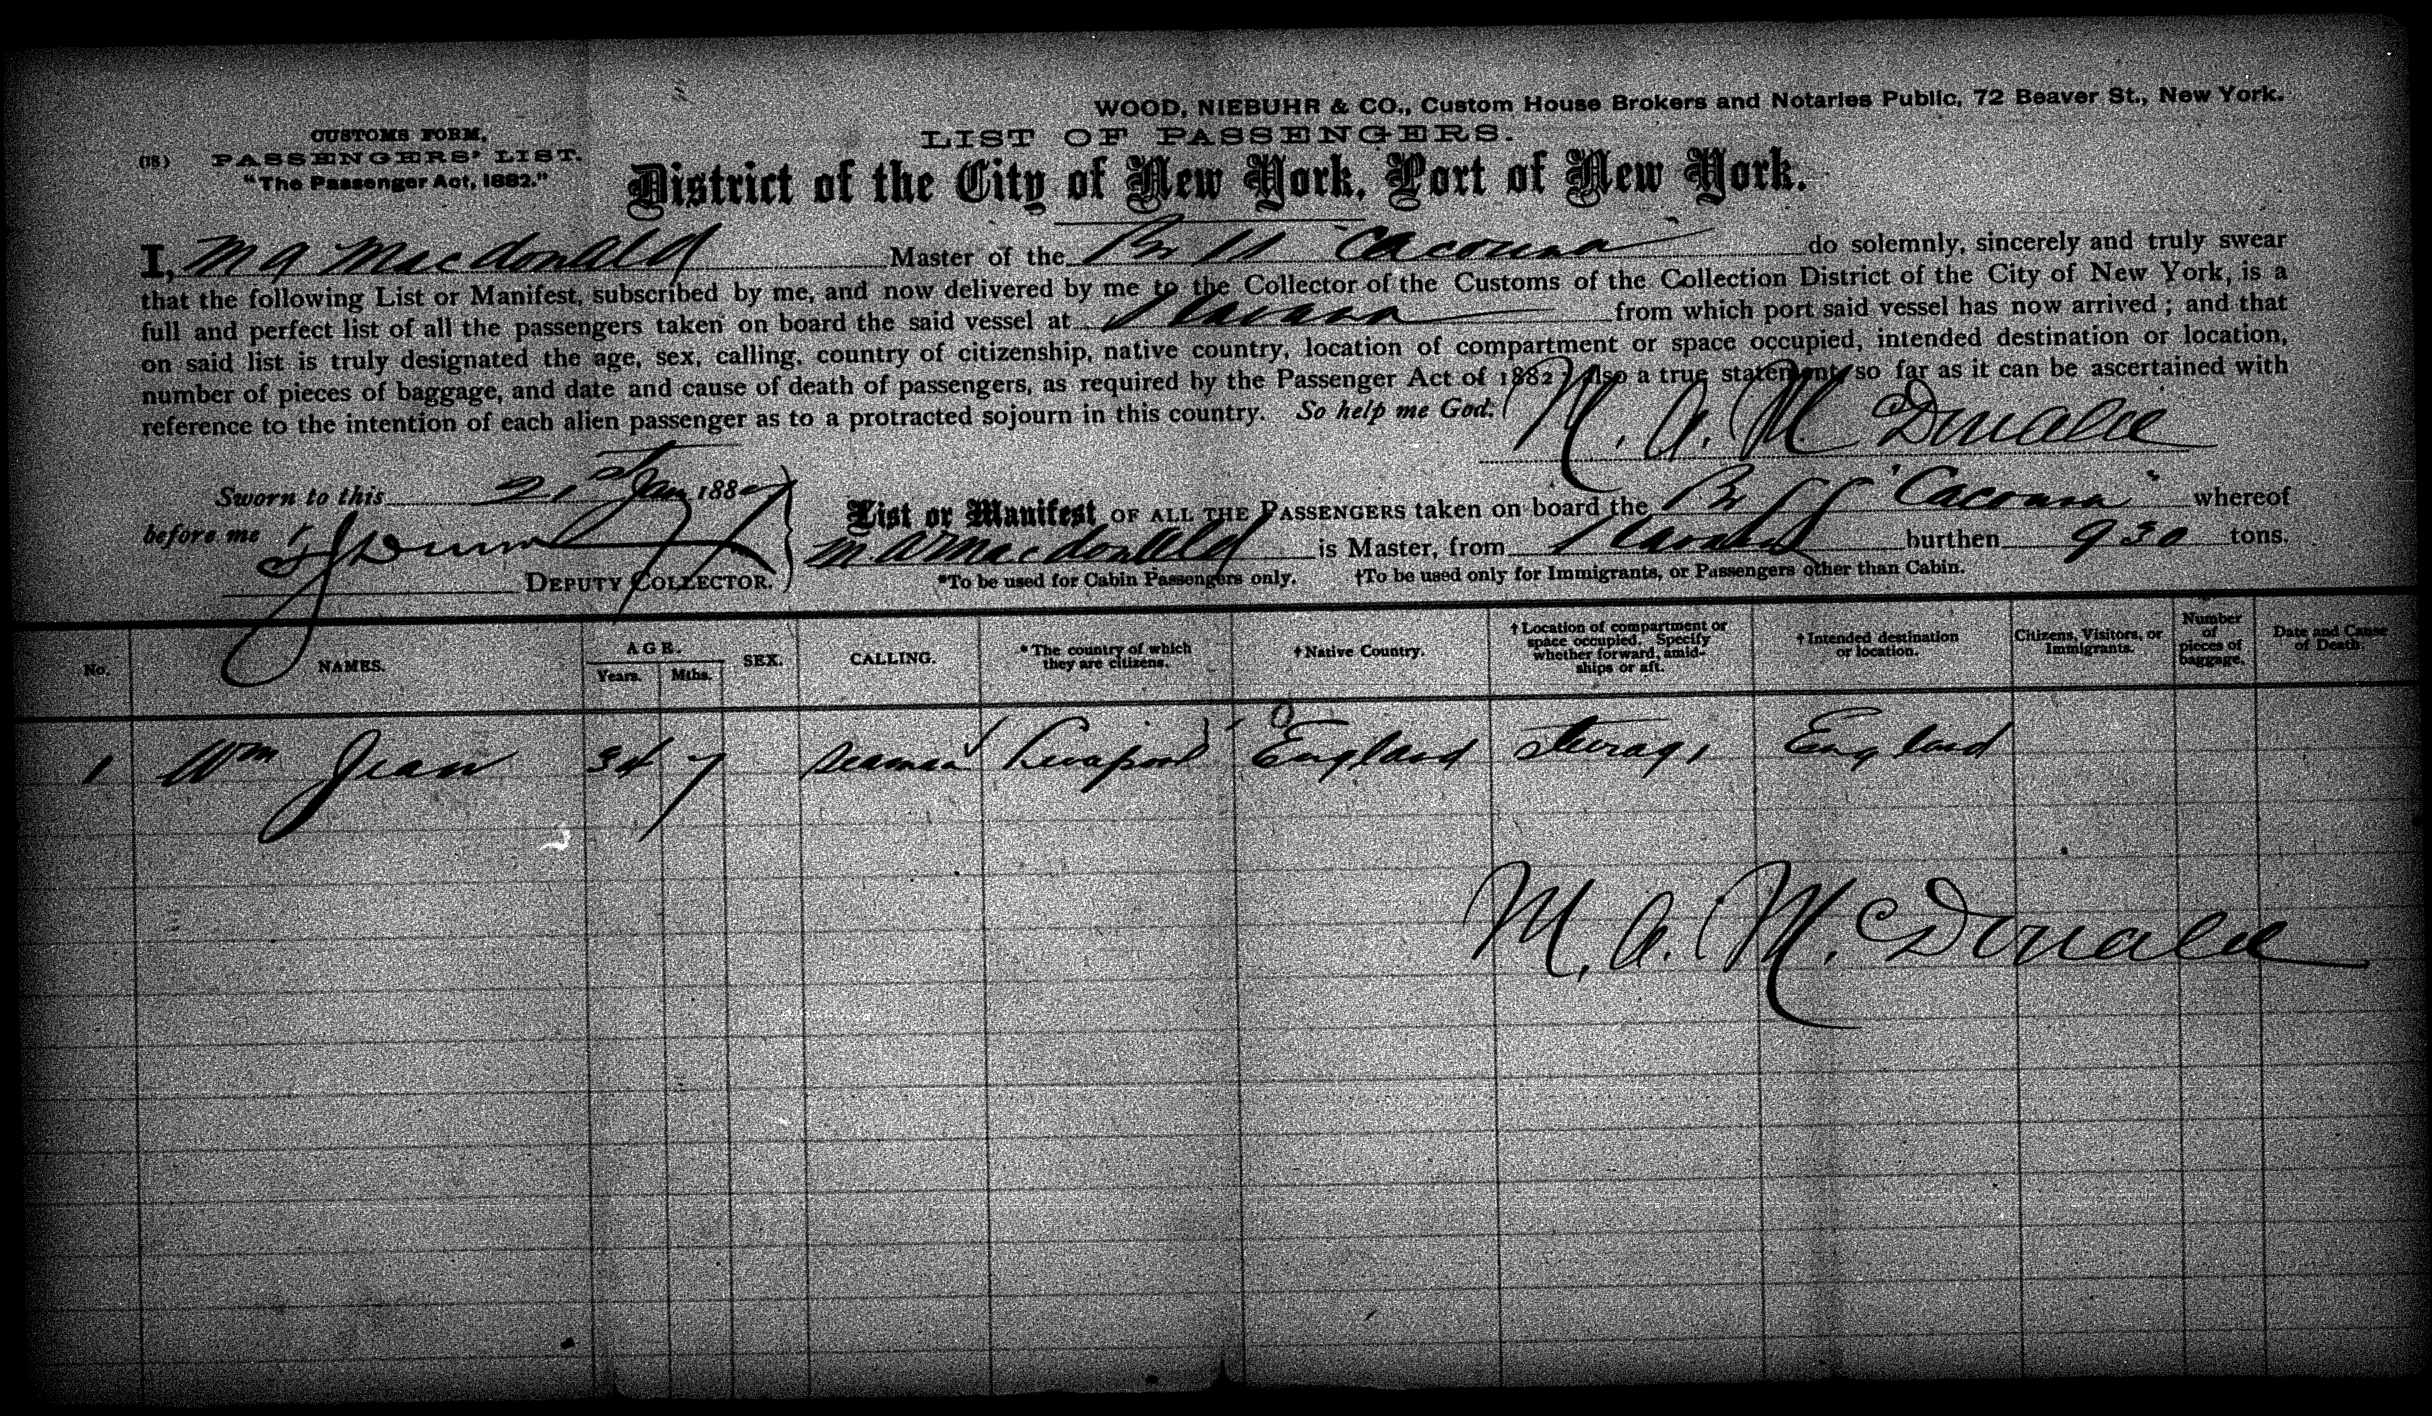 WOOD, NIEBUHR & CO., Custom House Brokers and Notaries Public, 72 Beaver St., New York.
CUSTOMS FORM,
LIST OF PASSENGERS.
(18) PASSENGERS' LIST.
"The Passenger Act, 1882."
District of the City of New York, Port of New York.
I, M A Macdonald Master of the Br SS "Cacouna" do solemnly, sincerely and truly swear
that the following List or Manifest, subscribed by me, and now delivered by me to the Collector of the Customs of the Collection District of the City of New York, is a
full and perfect list of all the passengers taken on board the said vessel at Havana from which port said vessel has now arrived; and that
on said list is truly designated the age, sex, calling, country of citizenship, native country, location of compartment or space occupied, intended destination or location,
number of pieces of baggage, and date and cause of death of passengers, as required by the Passenger Act of 1882; also a true statement, so far as it can be ascertained with
reference to the intention of each alien passenger as to a protracted sojourn in this country. So help me God.
M. A. McDonald
Sworn to this 21st Jany 1887
before me
DEPUTY COLLECTOR.
List or Manifest OF ALL THE PASSENGERS taken on board the Br SS "Cacouna" whereof
M A Macdonald is Master, from Havana burthen 930 tons.
*To be used for Cabin Passengers only. †To be used only for Immigrants, or Passengers other than Cabin.
No. NAMES. AGE. Years. Mths. SEX. CALLING. *The country of which they are citizens. †Native Country. †Location of compartment or space occupied. Specify whether forward, amidships or aft. †Intended destination or location. Citizens, Visitors, or Immigrants. Number of pieces of baggage. Date and Cause of Death.
1 Wm Jean 34 seaman Liverpool England steerage England
M. A. McDonald